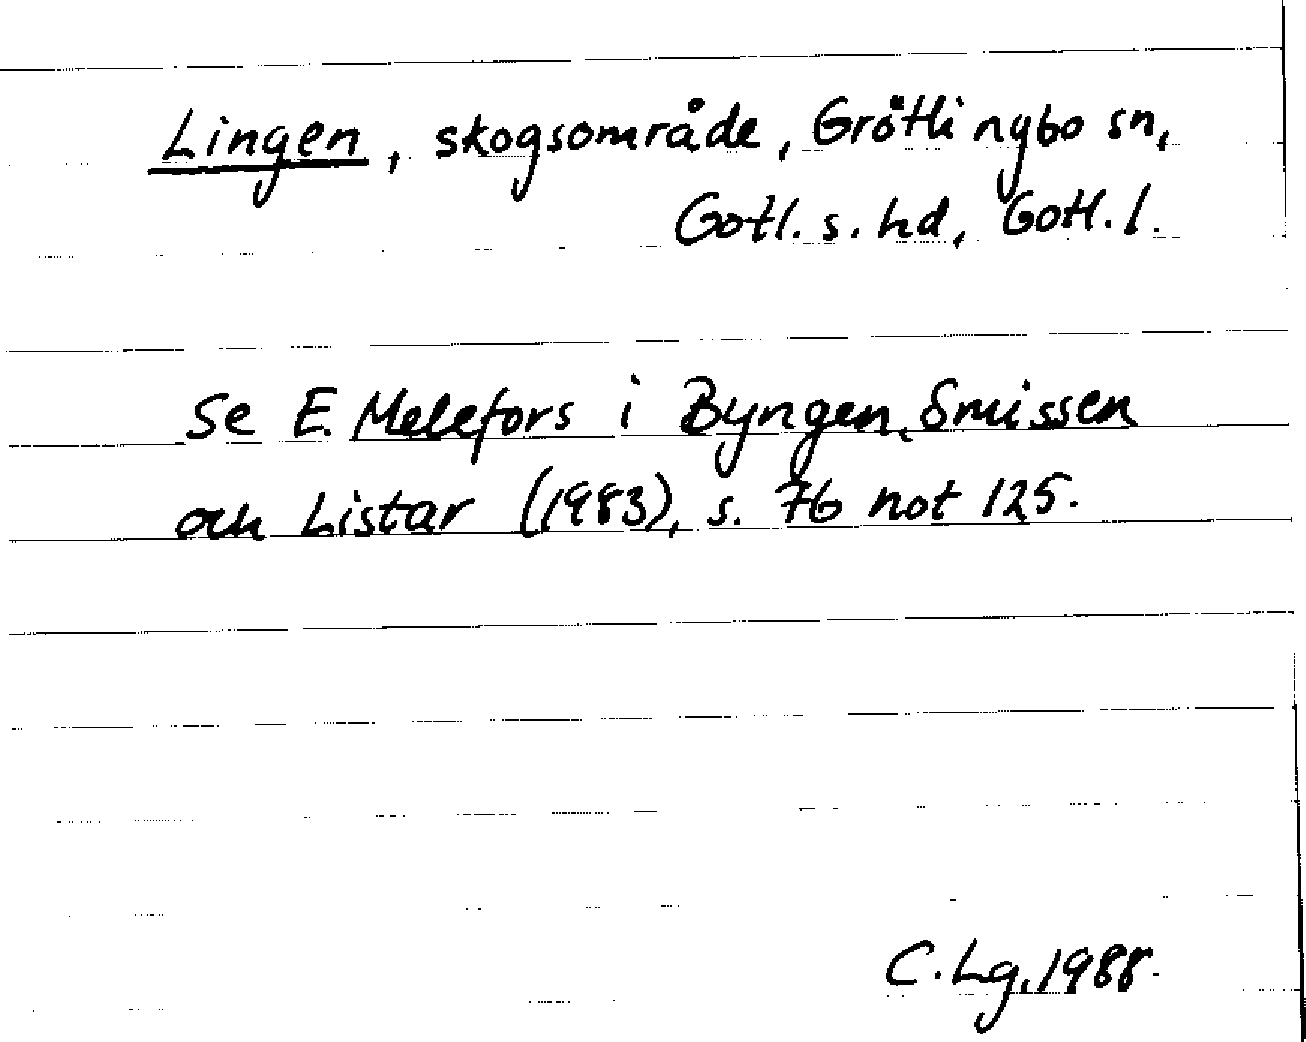 Lingen, skogsområde, Grötlingbo sn,
Gotl. s. hd, Gotl. l.
Se E. Melefors i Byngen, Smissen
och Listar (1983), s. 76 not 125.
C. Lg. 1988.